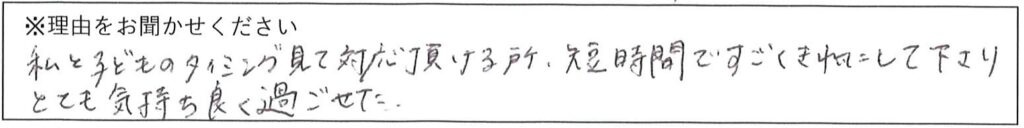 ※理由をお聞かせください
私と子どものタイミング見て対応頂ける所、短時間ですごくきれいにして下さり
とても気持ち良く過ごせた.